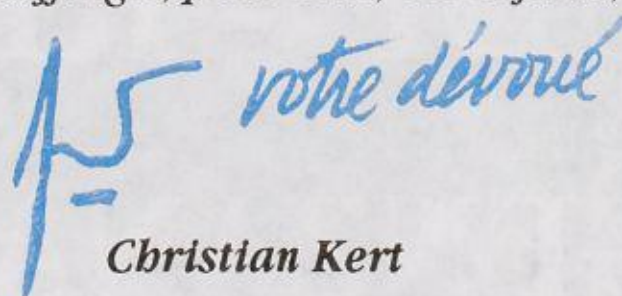 votre dévoué
Christian Kert